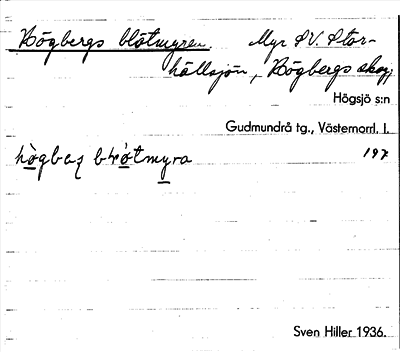 Högbergs blötmyren. Myr SV. Stor-
hällsjön, Högbergs skog,
Högsjö s:n
Gudmundrå tg., Västernorrl. l.
hògbaʒ bɫótmyra 197
Sven Hiller 1936.